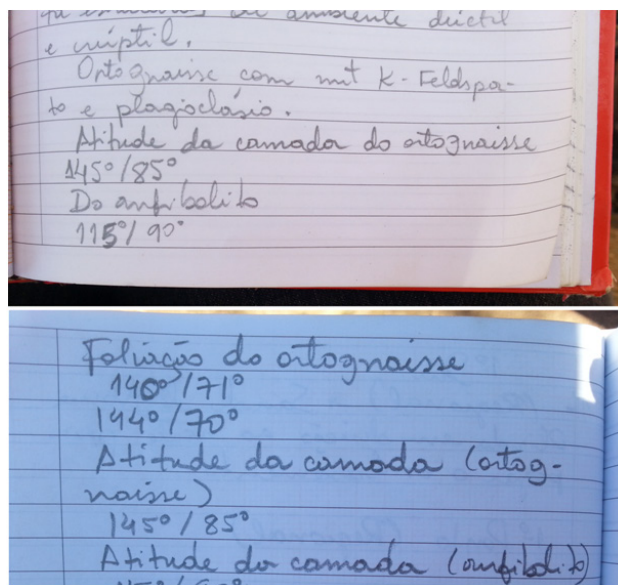 de ambiente dúctil
e rúptil.
Ortognaisse com mt K-Feldspa-
to e plagioclásio.
Atitude da camada do ortognaisse
145°/85°
Do anfibolito
115°/90°
Foliação do ortognaisse
140°/71°
144°/70°
Atitude da camada (ortog-
naisse)
145°/85°
Atitude da camada (anfibolito)